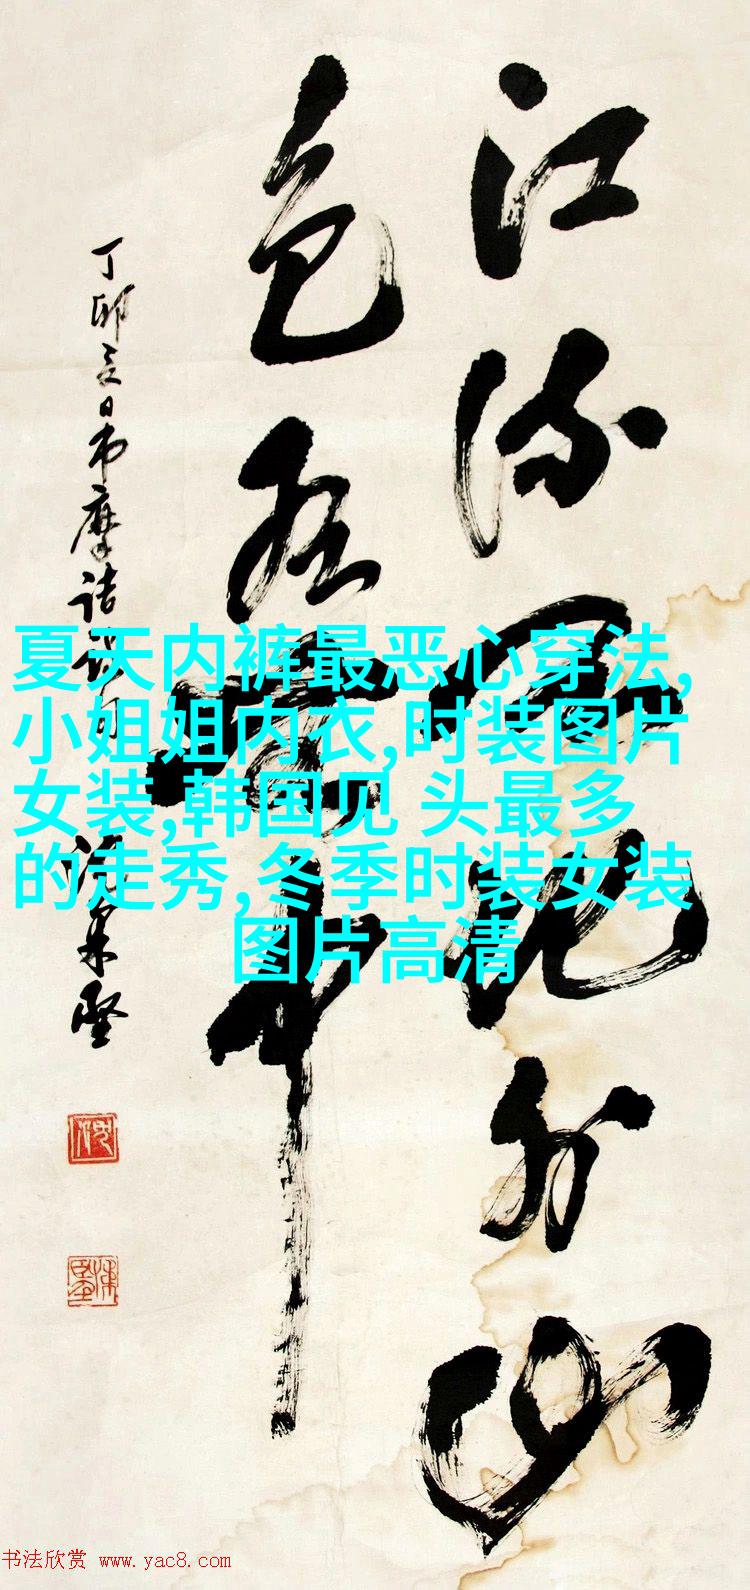 江流天地外山
色有无中
丁卯夏日书摩诘诗句
夏天内裤最恶心穿法,
小姐姐内衣,时装图片
女装,韩国见 头最多
的走秀,冬季时装女装
图片高清
书法欣赏 www.yac8.com